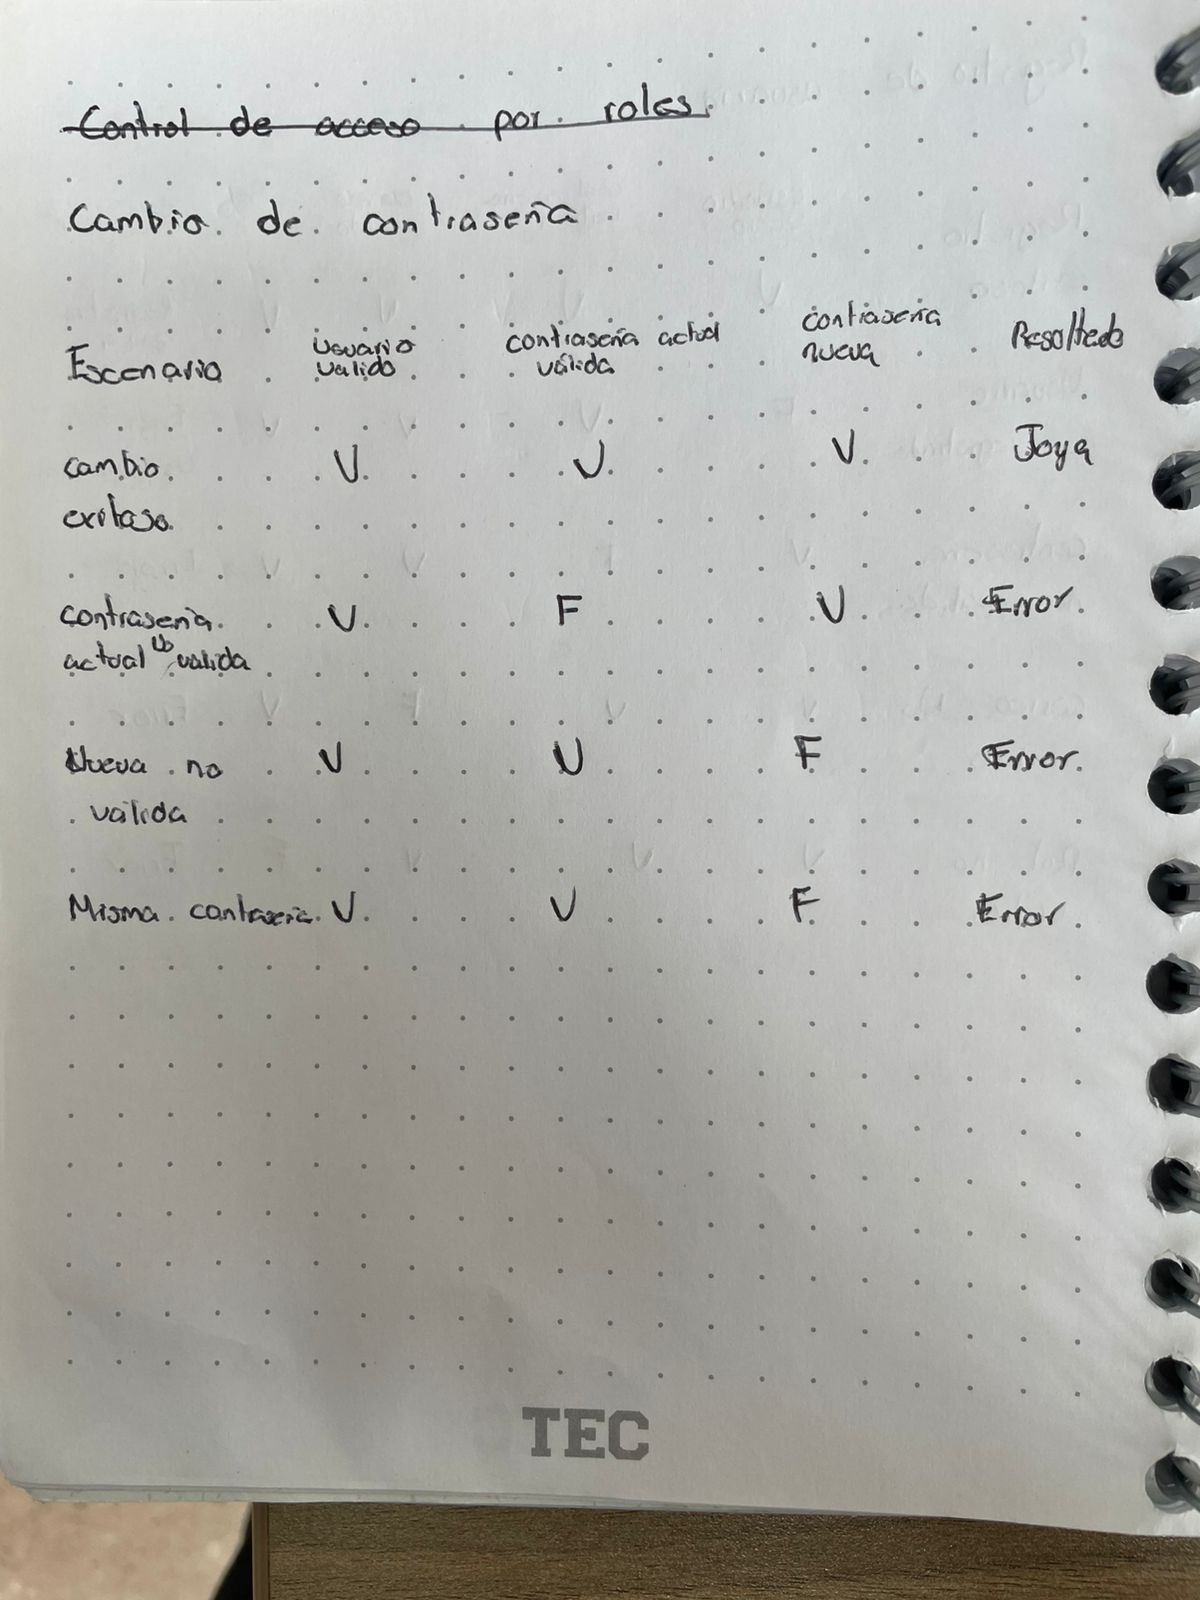 Control de acceso por roles.
Cambio de contraseña
Escenario usuario valido contraseña actual válida contraseña nueva Resultado
cambio exitoso V V V Joya
contraseña actual no valida V F V Error
Nueva no válida V V F Error
Misma contraseña V V F Error
TEC